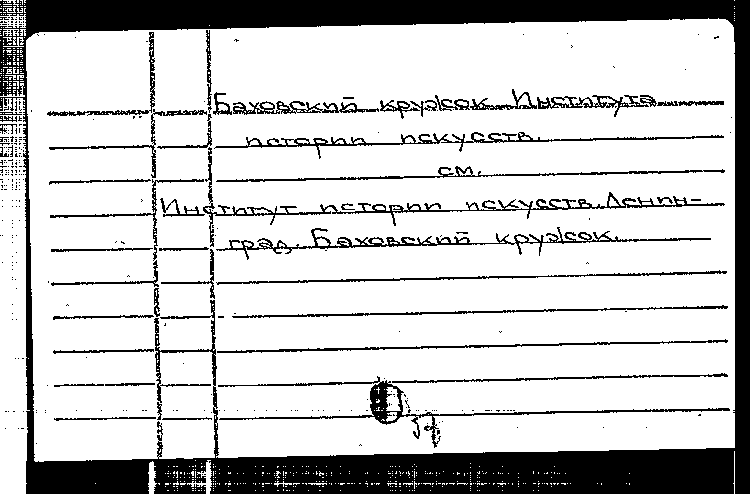 Баховский кружок Института
истории искусств.
см.
Институт истории искусств. Ленин-
град. Баховский кружок.